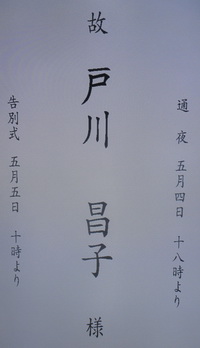 通夜 五月四日 十八時より
故 戸川 昌子 様
告別式 五月五日 十時より